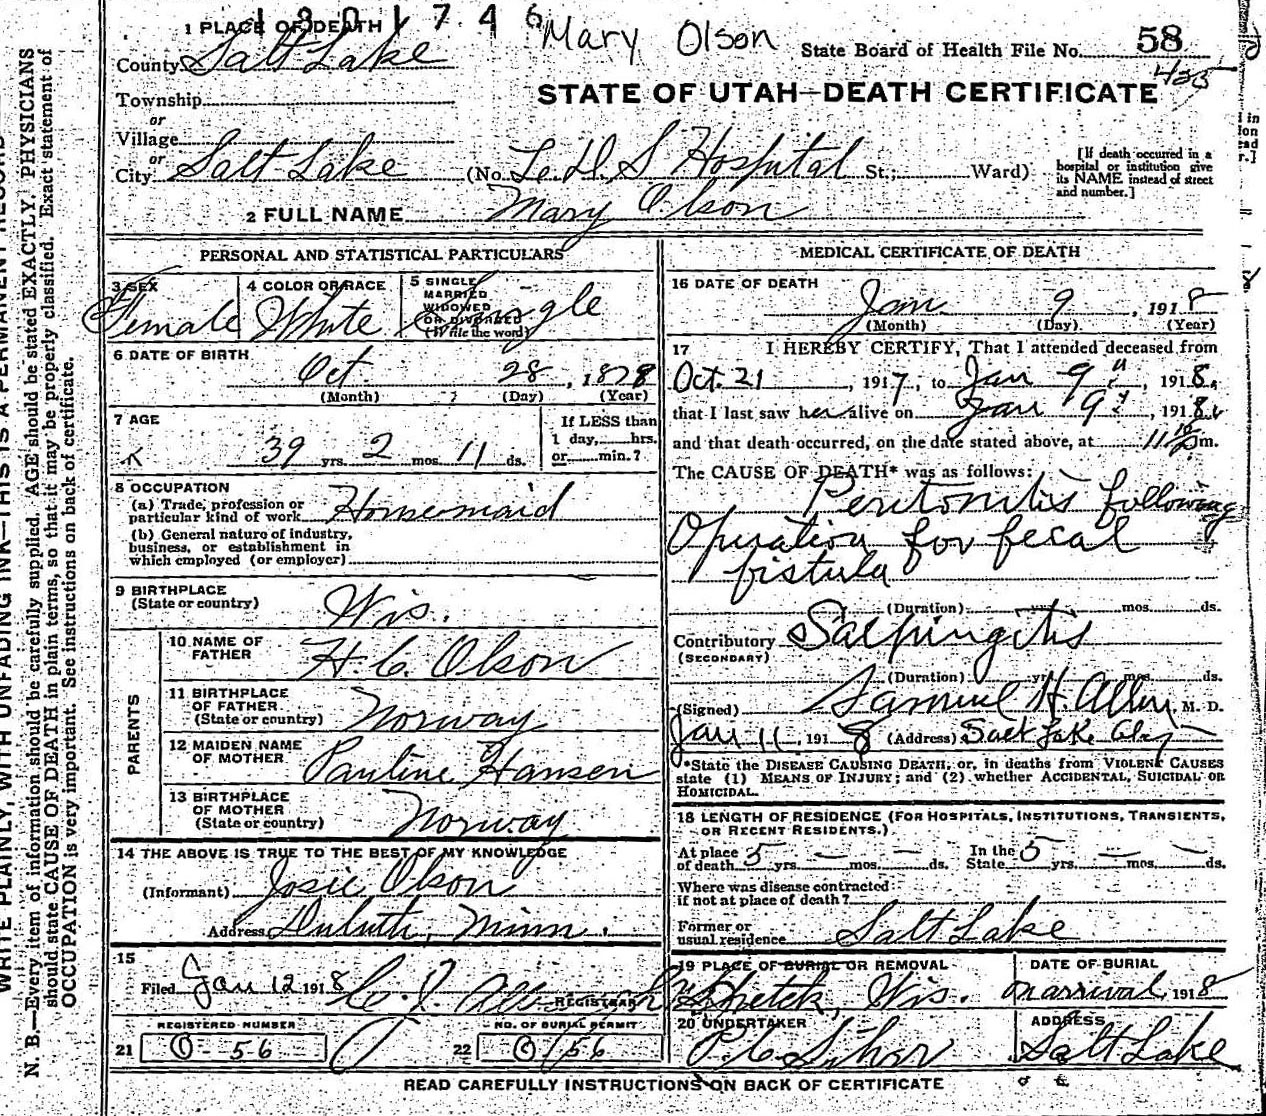 1301746
Mary Olson
1 PLACE OF DEATH
State Board of Health File No. 58
425
County Salt Lake
STATE OF UTAH—DEATH CERTIFICATE
Township
or
Village
or
City Salt Lake (No. L. D. S Hospital St.; Ward)
[If death occurred in a hospital or institution give its NAME instead of street and number.]
2 FULL NAME Mary Olson
PERSONAL AND STATISTICAL PARTICULARS
3 SEX Female
4 COLOR OR RACE White
5 SINGLE MARRIED WIDOWED OR DIVORCED (Write the word) Single
6 DATE OF BIRTH
Oct 28, 1878
(Month) (Day) (Year)
7 AGE
39 yrs. 2 mos. 11 ds.
If LESS than 1 day, hrs. or min.?
8 OCCUPATION
(a) Trade, profession or particular kind of work Homemaid
(b) General nature of industry, business, or establishment in which employed (or employer)
9 BIRTHPLACE
(State or country) Wis.
PARENTS
10 NAME OF FATHER H. C. Olson
11 BIRTHPLACE OF FATHER (State or country) Norway
12 MAIDEN NAME OF MOTHER Pauline Hansen
13 BIRTHPLACE OF MOTHER (State or country) Norway
14 THE ABOVE IS TRUE TO THE BEST OF MY KNOWLEDGE
(Informant) Josie Olson
Address Duluth, Minn.
15
Filed Jan 12 1918
REGISTRAR
REGISTERED NUMBER
21 0-56
NO. OF BURIAL PERMIT
22 0/56
MEDICAL CERTIFICATE OF DEATH
16 DATE OF DEATH
Jan. 9, 1918
(Month) (Day) (Year)
17 I HEREBY CERTIFY, That I attended deceased from
Oct. 21, 1917, to Jan 9", 1918,
that I last saw her alive on Jan 9", 1918
and that death occurred, on the date stated above, at 11 m.
The CAUSE OF DEATH* was as follows:
Peritonitis following
Operation for fecal
fistula
(Duration) yrs. mos. ds.
Contributory Salpingitis
(SECONDARY)
(Duration) yrs. mos. ds.
(Signed) Samuel H. Allen M. D.
Jan 11, 1918 (Address) Salt Lake City
*State the DISEASE CAUSING DEATH, or, in deaths from VIOLENT CAUSES
state (1) MEANS OF INJURY; and (2) whether ACCIDENTAL, SUICIDAL OR
HOMICIDAL.
18 LENGTH OF RESIDENCE (FOR HOSPITALS, INSTITUTIONS, TRANSIENTS,
OR RECENT RESIDENTS.)
At place of death 5 yrs. — mos. — ds. In the State 5 yrs. — mos. — ds.
Where was disease contracted
if not at place of death?
Former or
usual residence Salt Lake
19 PLACE OF BURIAL OR REMOVAL
Wis.
DATE OF BURIAL
on arrival, 1918
20 UNDERTAKER
ADDRESS
Salt Lake
READ CAREFULLY INSTRUCTIONS ON BACK OF CERTIFICATE
WRITE PLAINLY, WITH UNFADING INK—THIS IS A PERMANENT RECORD
N. B.—Every item of information should be carefully supplied. AGE should be stated EXACTLY. PHYSICIANS
should state CAUSE OF DEATH in plain terms, so that it may be properly classified. Exact statement of
OCCUPATION is very important. See instructions on back of certificate.